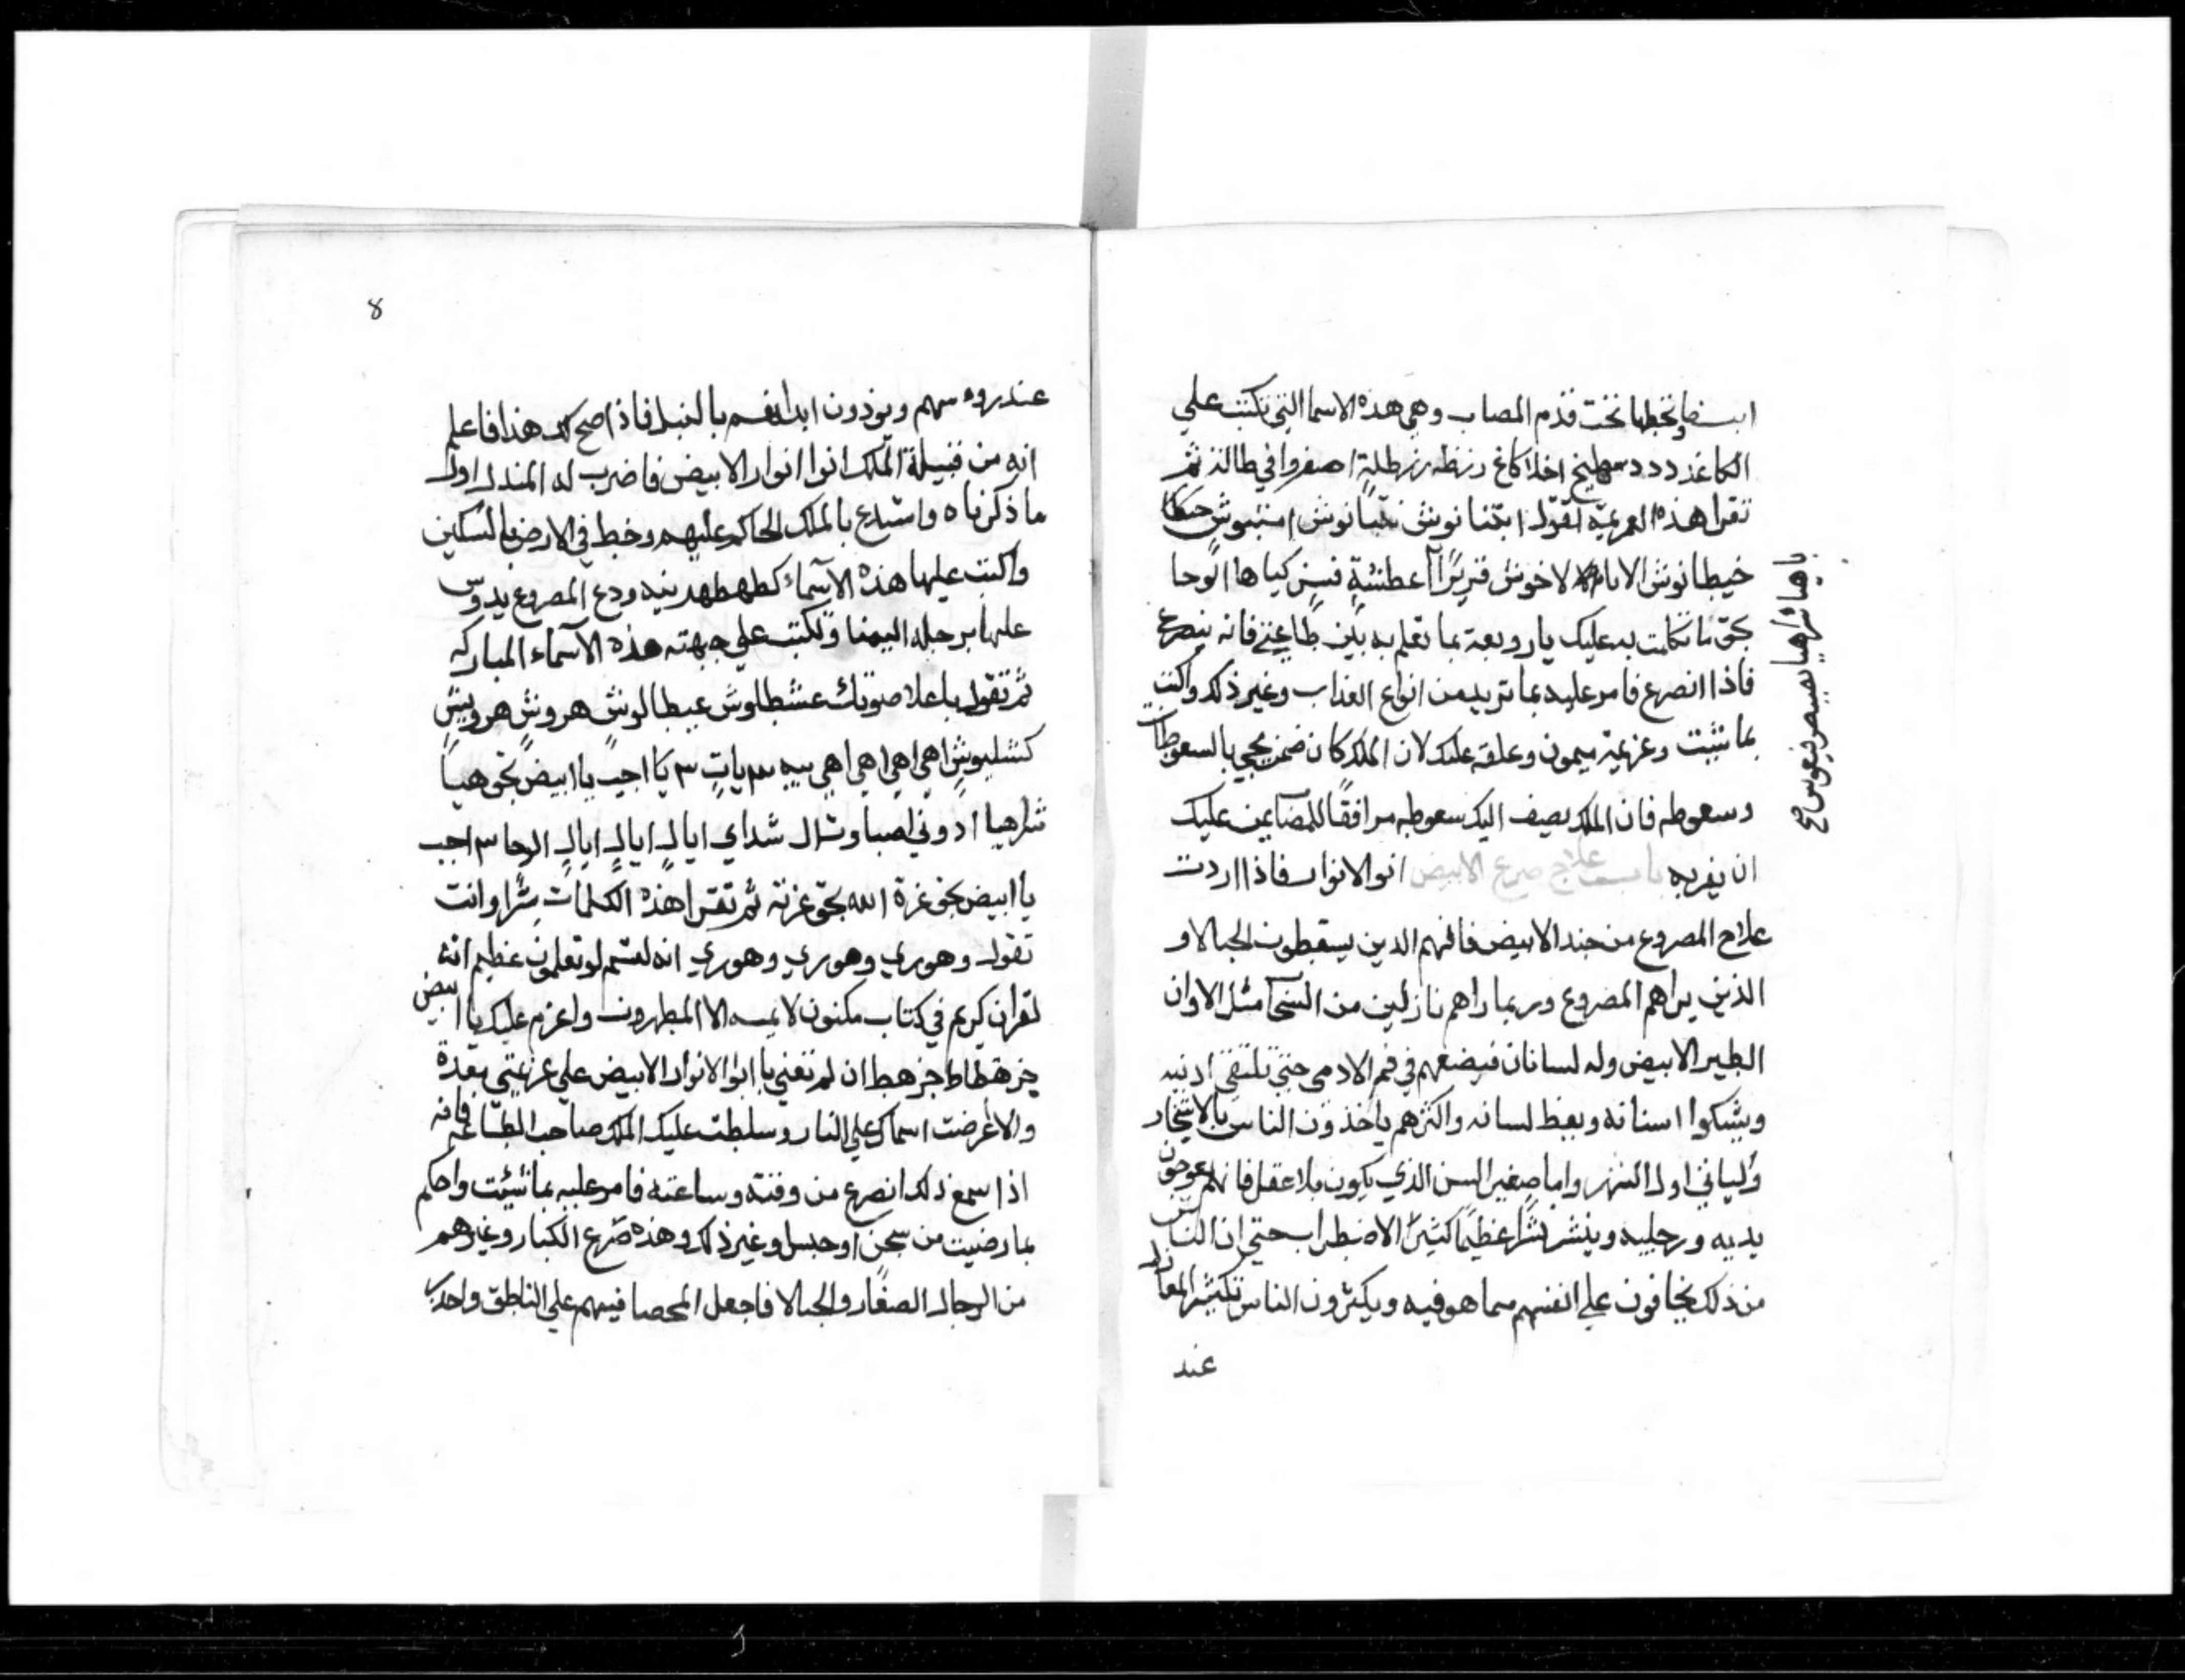 ايضا وتحطها تحت قدم المصاب وهي هذه الاسما التي تكتب علي
الكاغد د د د سهليخ اخلا كاغ رزظه رزطلية اصفروا في طالذ ثم
تقرا هذه العزيمة تقول ابتنا نوش نتيا نوش
خيطا نوش الا لاخوش عطشة كياها الوحا
بحق ما تكلمت به عليك يا روبعة بما تعلم به بين طاعتي فانه ينصرع
فاذا انصرع فامر عليه بما تريد من انواع العذاب وغير ذلك واكتب
بما شيت وعزيمة ميمون وعلقه عليك لان الملك كان ضمن يجي بالسعوطات
وسعوطه فان الملك يصيف اليك سعوطه مرافقًا
ان يغربه باب علاج صرع الابيض ابو الانوار فاذا اردت
علاج المصروع من جند الابيض فانهم الدين يسقطون الحبالا و
الذين يراهم المصروع وربما راهم نازلين من السما مثل الاوان
الطير الابيض وله لسانان فيضعهم في فم الادمي حتي تلتقي ادنيه
ويشبكوا اسنانه ويعظ لسانه واكثرهم ياخذون الناس بالاشجار
وليالي اول الشهر واما صغير السن الذي يكون بلا عقل فانهم عوجون
يديه ورجليه وينشر نشرا عظيمًا كثير الاضطراب حتي ان الناس
من ذلك يخافون علي انفسهم مما هو فيه ويكثرون الناس تكثير المعازل
عند
ياهيا شراهيا
8
عند روسهم ويوذون ابدانهم بالنبل فاذا صح لك هذا فاعلم
انه من قبيلة الملك ابوا انوار الابيض فاضرب له المندل اولا
ما ذكرناه واستدع بالملك الحاكم عليهم وخط في الارض بالسكين
واكتب عليها هذه الاسماء كطهطهدنيه ودع المصروع يدوس
عليها برجله اليمنا وتكتب علي جبهته هذه الاسماء المباركه
ثم تقول باعلا صوتك عشطلوش عيطالوش هروش هرويش
كشليوش اهي اهي اهي اهي بيه ٣ يات ٣ يا اجيب يا ابيض بحق هيا
شراهيا ادوني اصباوت ال شداي ايال ايال ايال الوحا ٣ اجب
يا ابيض بحق عزة الله بحق عزته ثم تقرا هذه الكلمات سرا وانت
تقول وهوري وهوري وهوري انه لقسم لو تعلمون عظيم انه
لقران كريم في كتاب مكنون لا يمسه الا المطهرون واعزم عليك يا ابيض
جزهطاط جزهط ان لم تغني يا ابو الانوار الابيض علي عزيمتي بهذة
والا عرضت اسماك علي النار وسلطت عليك الملك صاحب الطاعه فانه
اذا سمع ذلك انصرع من وقته وساعته فامر عليه بما شيت واحكم
بما رضيت من سجن او حبس وغير ذلك وهذه صرع الكبار وغيرهم
من الرجال الصغار والحبالا فاجعل المحصا فيهم علي الناطق واحدر